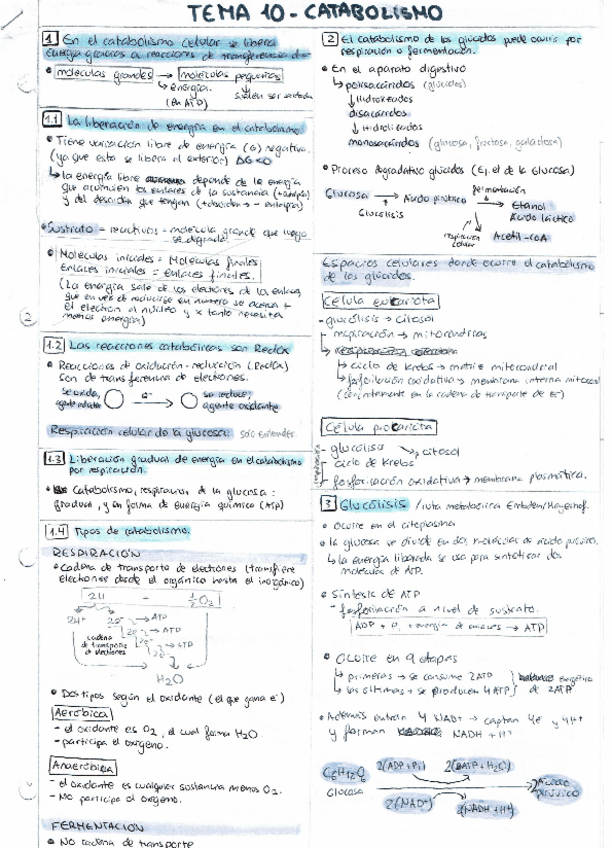 TEMA 10 - CATABOLISMO
1 En el catabolismo celular se libera
energía gracias a reacciones de transferencia de
moléculas grandes → moléculas pequeñas
energía
(en ATP)
1.1 La liberación de energía en el catabolismo
Tiene variación libre de energía (G) negativa.
(ya que esta se libera al exterior) ΔG<0
la energía libre depende de la energía
que acumulen los enlaces de la sustancia
y del desorden que tengan
Sustrato = reactivos = molécula grande que luego
se degrada
Moléculas iniciales = Moléculas finales
Enlaces iniciales = enlaces finales.
(La energía sale de los electrones de los enlaces
que en vez de reducirse en número se acerca +
el electrón al núcleo y x tanto necesita
menos energía)
2
1.2 Las reacciones catabólicas son Redox
Reacciones de oxidación-reducción (Redox)
son de transferencia de electrones.
se oxida, e- se reduce,
agente oxidante
Respiración celular de la glucosa solo entender
1.3 Liberación gradual de energía en el catabolismo
por respiración.
Catabolismo, respiración de la glucosa:
gradual, y en forma de energía química (ATP)
1.4 Tipos de catabolismo.
RESPIRACIÓN
Cadena de transporte de electrones (transfiere
electrones desde el orgánico hasta el inorgánico)
2H - ½O2
2H+ 2e- → ATP
cadena 2e- → ATP
de transporte 2e- → ATP
de electrones 2e-
H2O
Dos tipos según el oxidante (el que gana e-)
Aeróbica
- el oxidante es O2, el cual forma H2O.
- participa el oxígeno.
Anaeróbica
- el oxidante es cualquier sustancia menos O2.
- No participa el oxígeno.
FERMENTACIÓN
No cadena de transporte
2 El catabolismo de los glúcidos puede ocurrir por
respiración o fermentación.
En el aparato digestivo
polisacáridos (glúcidos)
↓ Hidrolizados
disacáridos
↓ Hidrolizados
monosacáridos (glucosa, fructosa, galactosa)
Proceso degradativo glúcidos (Ej. el de la Glucosa)
fermentación
Glucosa → Ácido pirúvico → Etanol
Glucólisis Ácido láctico
respiración
celular Acetil-CoA
Espacios celulares donde ocurre el catabolismo
de los glúcidos.
Célula eucariota
- glucólisis → citosol
- respiración → mitocondrias
ciclo de krebs → matriz mitocondrial
fosforilación oxidativa → membrana interna mitocon
(concretamente en la cadena de transporte de e-)
Célula procariota
respiración
glucólisis → citosol
ciclo de krebs
fosforilación oxidativa → membrana plasmática.
3 Glucólisis / ruta metabólica Embden/Meyerhof.
Ocurre en el citoplasma
la glucosa se divide en dos moléculas de ácido pirúvico.
la energía liberada se usa para sintetizar dos
moléculas de ATP.
Síntesis de ATP
- fosforilación a nivel de sustrato.
ADP + Pi + energía de enlaces → ATP
Ocurre en 9 etapas
primeras → se consume 2ATP balance energético
las últimas → se producen 4ATP de 2ATP
Además entran NAD+ → captan 4e- y 4H+
y forman NADH + H+
C6H12O6 2(ADP+Pi) 2(ATP+H2O) Ácido
Glucosa pirúvico
2(NAD+) 2(NADH+H+)